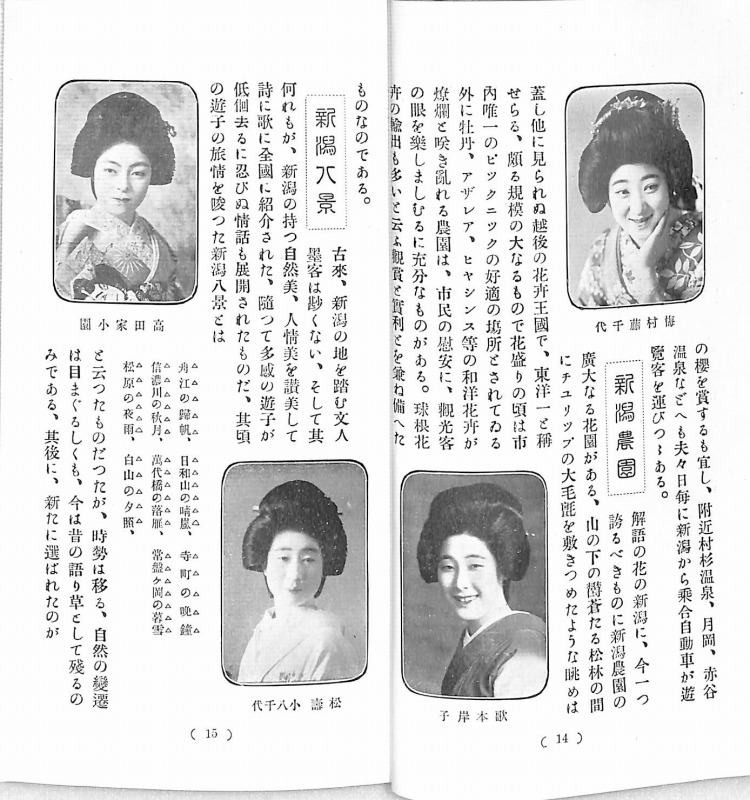 の櫻を賞するも宜し、附近村杉溫泉、月岡、赤谷
溫泉などへも夫々日毎に新潟から乗合自動車が遊
覽客を運びつゝある。
新潟農園
解語の花の新潟に、今一つ
誇るべきものに新潟農園の
廣大なる花園がある、山の下の欝蒼たる松林の間
にチユリツプの大毛氈を敷きつめたような眺めは
梅村藤千代
歌本岸子
蓋し他に見られぬ越後の花卉王國で、東洋一と稱
せらる、頗る規模の大なるもので花盛りの頃は市
內唯一のピツクニツクの好適の場所とされてゐる
外に牡丹、アザレア、ヒヤシンス等の和洋花卉が
燎爛と咲き亂れる農園は、市民の慰安に、觀光客
の眼を樂しましむるに充分なものがある。球根花
卉の輸出も多いと云ふ觀賞と實利とを兼ね備へた
(14)
ものなのである。
新潟八景
古來、新潟の地を踏む文人
墨客は尠くない、そして其
何れもが、新潟の持つ自然美、人情美を讃美して
詩に歌に全國に紹介された、隨つて多感の遊子が
低徊去るに忍びぬ情話も展開されたものだ、其頃
の遊子の旅情を唆つた新潟八景とは
高田家小園
舟江の歸帆、日和山の晴嵐、寺町の晩鐘
信濃川の秋月、萬代橋の落雁、常盤ヶ岡の暮雪
松原の夜雨、白山の夕照、
と云つたものだつたが、時勢は移る、自然の變遷
は目まぐるしくも、今は昔の語り草として殘るの
みである、其後に、新たに選ばれたのが
松壽小八千代
(15)